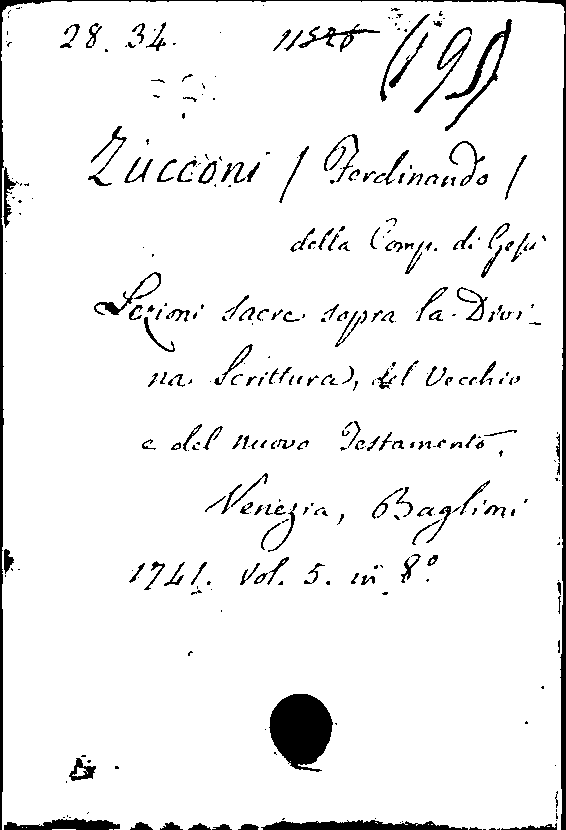 28. 34. 11526 (195)
Zucconi / Ferdinando /
della Comp. di Gesù
Lezioni sacre sopra la Divi-
na Scrittura, del Vecchio
e del nuovo Testamento,
Venezia, Baglioni
1741. vol. 5. in 8º